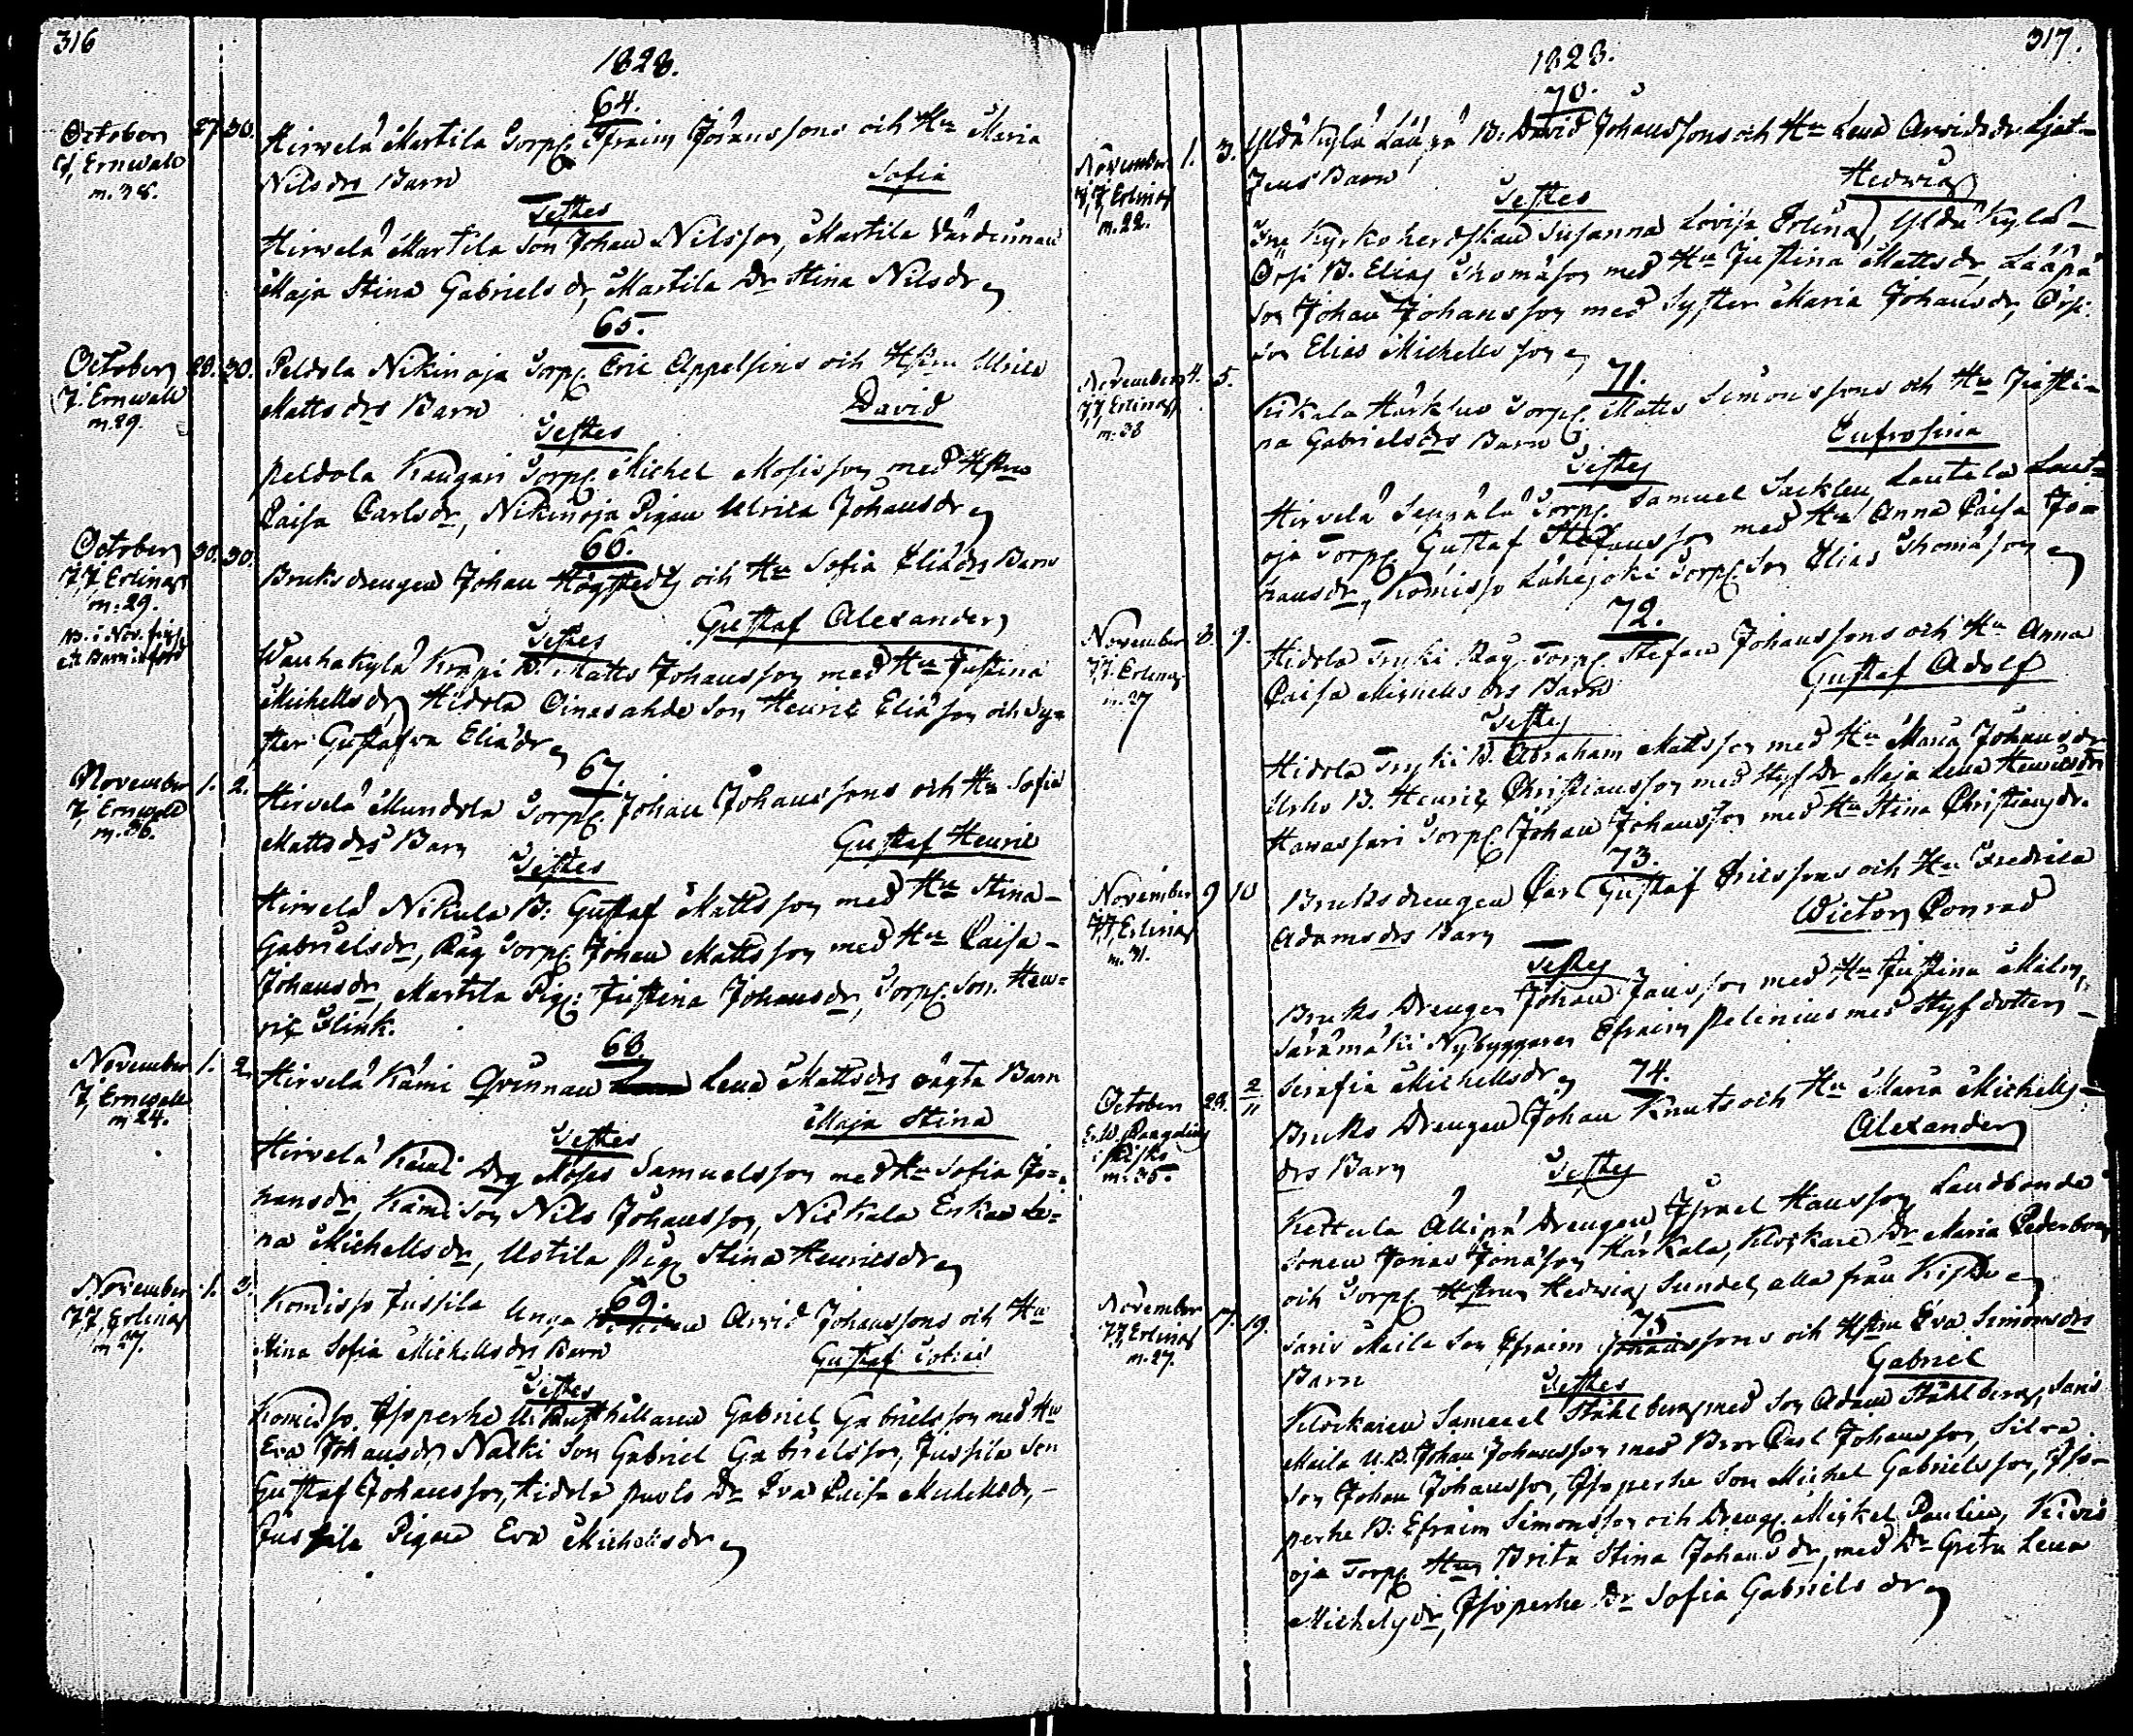 316
1828.
64.
October 27. 30. Hirvelä Martila Torp. Efraim Johanssons och Hu Maria
J. Ernwald
m. 38.
Nilsdrs Barn Sofia
Testes
Hirvelä Martila Son Johan Nilsson, Martila Värdinnan
Maja Stina Gabrielsdr, Martila Dr Stina Nilsdr
65.
October 28. 30. Peldola Nikinoja Torp. Eric Appelsins och Hstru Ulrica
J. Ernwald
m. 29.
Mattsdrs Barn David
Testes
Peldola Kaugari Torp. Michel Mosisson med Hstru
Caisa Carlsdr, Nikinoja Pigan Ulrica Johansdr
66.
October 30. 30. Bruksdrengen Johan Högstedts och Hu Sofia Eliädrs Barn
J. J. Erlings
m. 29.
Gustaf Alexander
Testes
Wanhakylä Krapi B. Matts Johansson med Hu Justina
Michelsdr, Hidola Oinasahde Son Henric Eliäson och Sy-
ster Gustafva Eliädr
67.
November 1. 2. Hirvelä Mundola Torp. Johan Johanssons och Hu Sofia
J. Ernwald
m. 36.
Mattsdrs Barn Gustaf Henric
Testes
Hirvelä Nikula B: Gustaf Mattsson med Hu Stina
Gabrielsdr, Räg Torp. Johan Mattsson med Hu Caisa
Johansdr, Martila Pig: Justina Johansdr, Torp. Son Hen-
ric Glink.
68.
November 1. 2. Hirvelä Kämi Qvinnan Lena Mattsdrs oägta Barn
J. Ernwald
m. 24.
Maja Stina
Testes
Hirvelä Kämi Drg Moses Samuelsson med Hu Sofia Jo-
hansdr, Kämi Son Nils Johansson, Nickala Enkan Le-
na Michelsdr, Ustila Pig. Stina Henricsdr
69.
November 1. 3. Komisso Jussila Unga Arvid Johanssons och Hu
J. J. Erlings
m. 27.
Stina Sofia Michelsdrs Barn Gustaf Tobias
Testes
Komisso Isoperhe Gabriel Gabrielsson med Hu
Eva Johansdr, Nalki Son Gabriel Gabrielsson, Jussila Son
Gustaf Johansson, Hidola Dr Eva Caisa Michelsdr,
Jussila Pigan Eva Michelsdr
317.
1828.
70.
November 1. 3. Yldäkylä Lääpä B: David Johanssons och Hu Lena Arvidsdr
J. J. Erlings
m. 22.
Barn Hedvig
Testes
Fru Kyrkoherdskan Susanna Lovisa Erling, Yldäkylä
Örsi B. Elias Thomäson med Hu Justina Mattsdr, Lääpä
Son Johan Johansson med Syster Maria Johansdr, Örsi
Son Elias Michelsson
71.
November 4. 5. Kikala Härkluo Torp. Matts Simonssons och Hu Justi-
J. J. Erlings
m. 38
na Gabrielsdrs Barn Eufrosina
Testes
Hirvelä Seppälä Torp. Samuel Sacklen, Lautela Laut-
oja Torp. Gustaf Stefansson med Hu Anna Caisa Jo-
hansdr, Komisso Lähejoki Torp. Son Elias Thomäson
72.
November 8. 9. Hidola Tryki Räg Torp. Stefan Johanssons och Hu Anna
J. J. Erlings
m. 37
Caisa Michelsdrs Barn Gustaf Adolf
Testes
Hidola Tryki B. Abraham Mattsson med Hu Maria Johansdr
Urho B. Henric Christiansson med Styf Dr Maja Lena Henricsdr
Hanassari Torp. Johan Johansson med Hu Stina Christiansdr.
73.
November 9 10 Bruksdrengen Carl Gustaf Ericssons och Hu Fredrica
J. J. Erlings
m. 31.
Adamsdrs Barn Wictor Conrad
Testes
Bruks Drengen Johan Jansson med Hu Justina Malm,
Säramäki Nybyggaren Efraim Pelenius med Styf dotter
Serafia Michelsdr
74.
October 29. 2/11 Bruks Drengen Johan Knuts och Hu Maria Michels-
m. 35.
drs Barn Alexander
Testes
Kettula Drengen Israel Hansson, Landbonde
Sonen Jonas Jonäson Härkala, Klockare Dr Maria Cederberg
och Torp. Hstrun Hedvig Sundel, alla från Kisko
75
November 17. 19. Saris Maila Son Efraim Johanssons och Hstru Eva Simonsdrs
J. J. Erlings
m. 27.
Barn Gabriel
Testes
Klockaren Samuel Ståhlberg med Son Adam Ståhlberg, Saris
Maila U. B. Johan Johansson med Bror Carl Johansson, Silva
Son Johan Johansson, Isoperhe Son Michel Gabrielsson, Iso-
perhe B: Efraim Simonsson och Dreng. Mickel Paulin, Kivis
oja Torp. Hu Brita Stina Johansdr, med Dr Greta Lena
Michelsdr, Isoperhe Dr Sofia Gabrielsdr